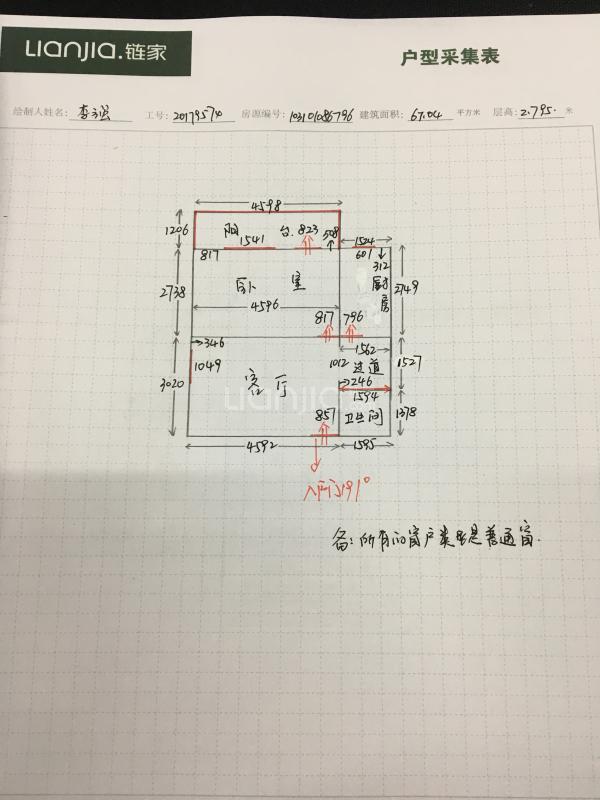 LIANJIA.链家
户型采集表
绘制人姓名: 李强 工号: 20179574 房源编号: 103101086796 建筑面积: 67.04 平方米 层高: 2.795. 米
4598
1206 阳 台 823 508
1541 1524
817 601 312
2738 卧 室 厨房 2749
4596
817 796
346 1562
3020 1049 1012 过道 1527
客厅 246
LIANJIA 1594
857 卫生间 1378
4592 1595
入户门191°
备:所有的窗户类型是普通窗.